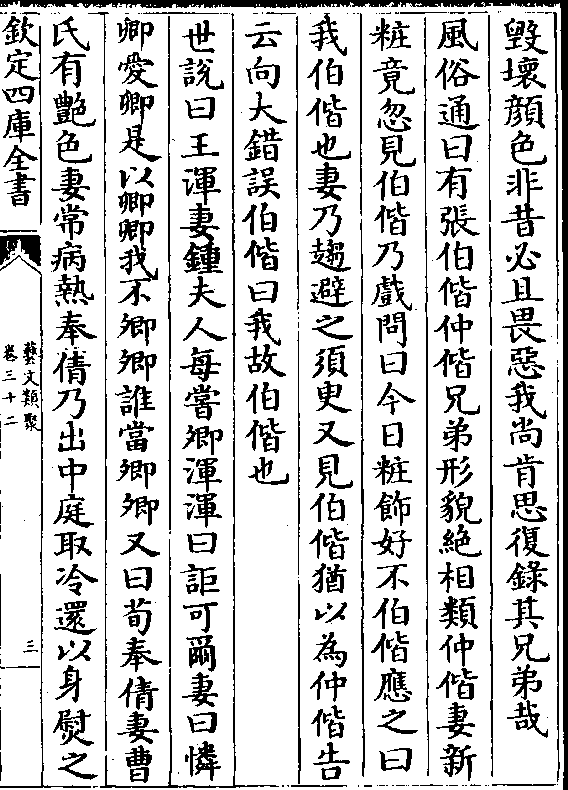 毀壞顔色非昔必且畏惡我尚肯思復錄其兄弟哉
風俗通曰有張伯偕仲偕兄弟形貌絶相類仲偕妻新
粧竟忽見伯偕乃戲問曰今日粧飾好不伯偕應之曰
我伯偕也妻乃趨避之須臾又見伯偕猶以為仲偕告
云向大錯誤伯偕曰我故伯偕也
世說曰王渾妻鍾夫人每嘗卿渾渾曰詎可爾妻曰憐
卿愛卿是以卿卿我不卿卿誰當卿卿又曰荀奉倩妻曹
氏有艷色妻常病熱奉倩乃出中庭取冷還以身熨之
欽定四庫全書
藝文類聚
卷三十二
三